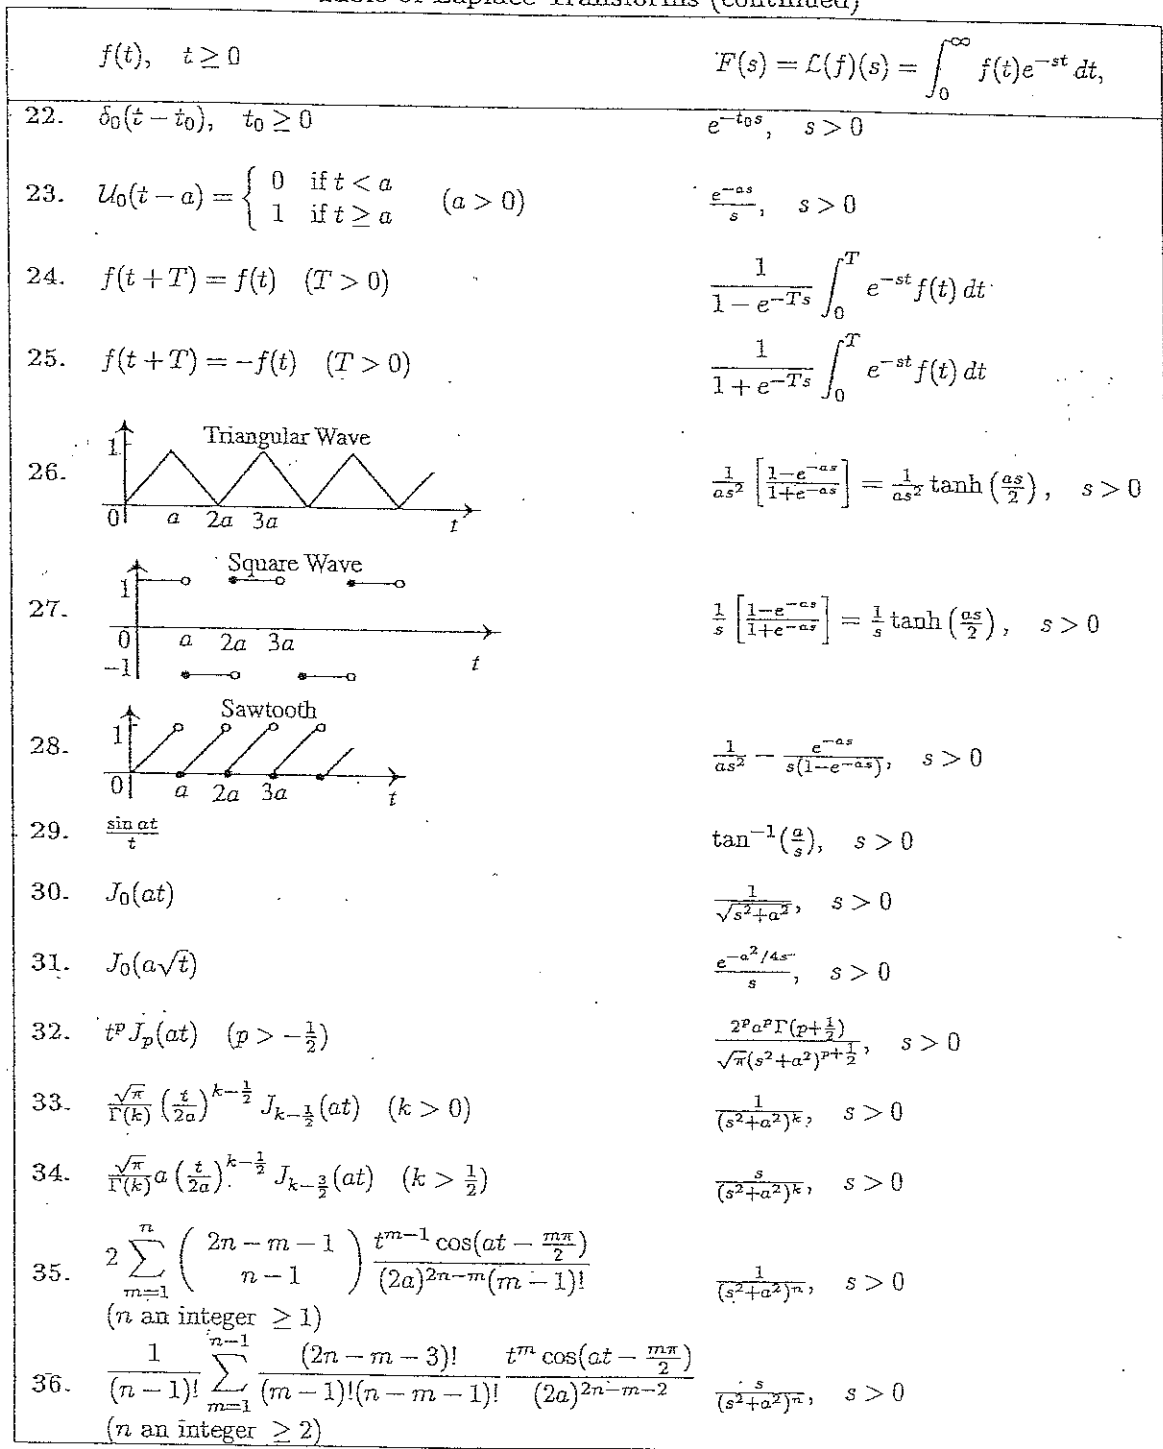 Table of Laplace Transforms (continued)
f(t), t ≥ 0    F(s) = ℒ(f)(s) = ∫_0^∞ f(t)e^{-st} dt,
22. δ_0(t − t_0), t_0 ≥ 0    e^{-t_0 s}, s > 0
23. 𝒰_0(t − a) = { 0 if t < a    1 if t ≥ a    (a > 0)    \frac{e^{-as}}{s}, s > 0
24. f(t + T) = f(t) (T > 0)    \frac{1}{1 − e^{-Ts}} ∫_0^T e^{-st} f(t) dt
25. f(t + T) = −f(t) (T > 0)    \frac{1}{1 + e^{-Ts}} ∫_0^T e^{-st} f(t) dt
Triangular Wave
1
26.    \frac{1}{as^2} [\frac{1−e^{-as}}{1+e^{-as}}] = \frac{1}{as^2} tanh(\frac{as}{2}), s > 0
0 a 2a 3a t
Square Wave
1
27.    \frac{1}{s} [\frac{1−e^{-as}}{1+e^{-as}}] = \frac{1}{s} tanh(\frac{as}{2}), s > 0
0 a 2a 3a t
−1
Sawtooth
1
28.    \frac{1}{as^2} − \frac{e^{-as}}{s(1−e^{-as})}, s > 0
0 a 2a 3a t
29. \frac{sin at}{t}    tan^{-1}(\frac{a}{s}), s > 0
30. J_0(at)    \frac{1}{\sqrt{s^2+a^2}}, s > 0
31. J_0(a√t)    \frac{e^{-a^2/4s}}{s}, s > 0
32. t^p J_p(at) (p > −\frac{1}{2})    \frac{2^p a^p Γ(p+\frac{1}{2})}{\sqrt{π}(s^2+a^2)^{p+\frac{1}{2}}}, s > 0
33. \frac{\sqrt{π}}{Γ(k)} (\frac{t}{2a})^{k−\frac{1}{2}} J_{k−\frac{1}{2}}(at) (k > 0)    \frac{1}{(s^2+a^2)^k}, s > 0
34. \frac{\sqrt{π}}{Γ(k)} a (\frac{t}{2a})^{k−\frac{1}{2}} J_{k−\frac{3}{2}}(at) (k > \frac{1}{2})    \frac{s}{(s^2+a^2)^k}, s > 0
35. 2 \sum_{m=1}^{n} \binom{2n − m − 1}{n − 1} \frac{t^{m−1} cos(at − \frac{mπ}{2})}{(2a)^{2n−m}(m − 1)!}    \frac{1}{(s^2+a^2)^n}, s > 0
(n an integer ≥ 1)
36. \frac{1}{(n − 1)!} \sum_{m=1}^{n−1} \frac{(2n − m − 3)!}{(m − 1)!(n − m − 1)!} \frac{t^m cos(at − \frac{mπ}{2})}{(2a)^{2n−m−2}}    \frac{s}{(s^2+a^2)^n}, s > 0
(n an integer ≥ 2)